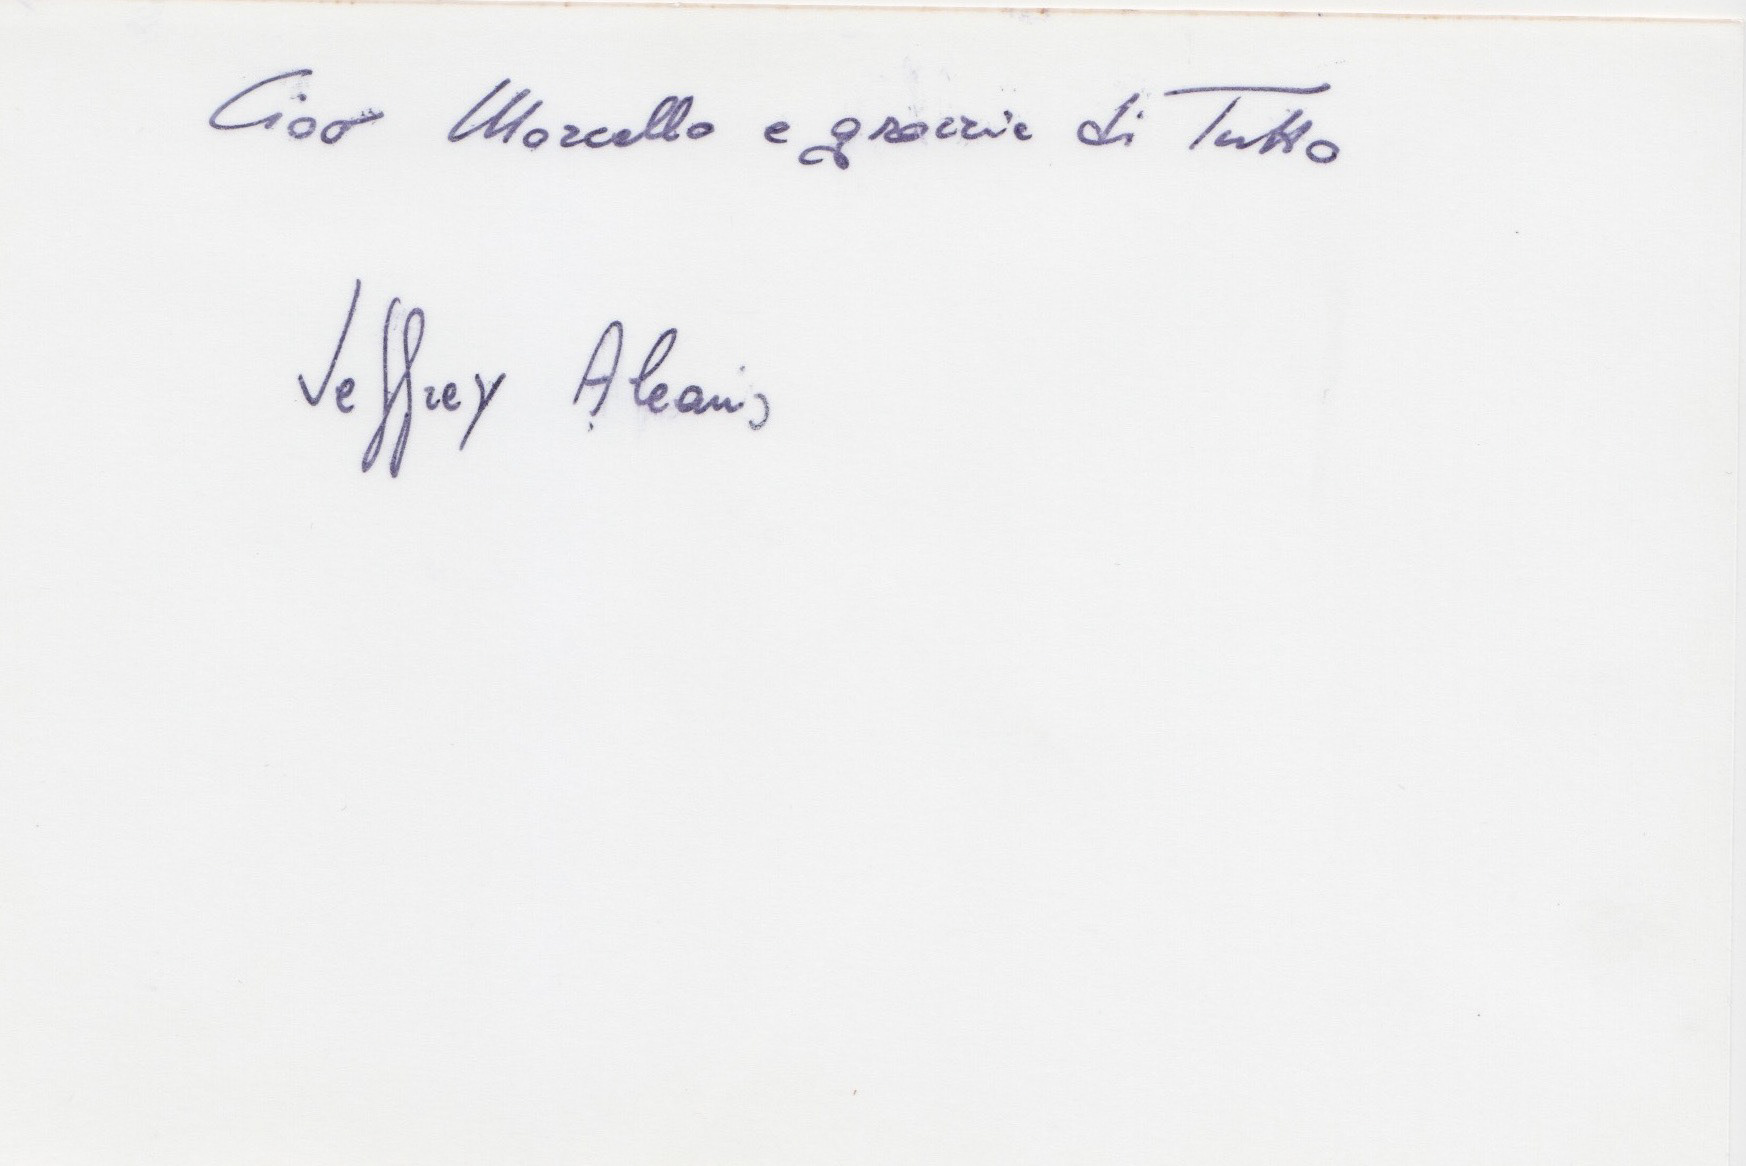 Ciao Marcello e grazzie di Tutto
Jeffrey